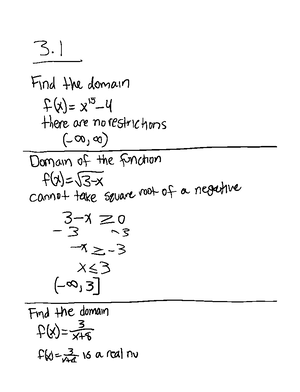 3.1
Find the domain
f(x) = x¹⁵ - 4
there are no restrictions
(-∞, ∞)
Domain of the function
f(x) = √3-x
cannot take square root of a negative
3-x ≥ 0
-3 -3
-x ≥ -3
x ≤ 3
(-∞, 3]
Find the domain
f(x) = 3/x+8
f(x) = 3/x+8 is a real nu